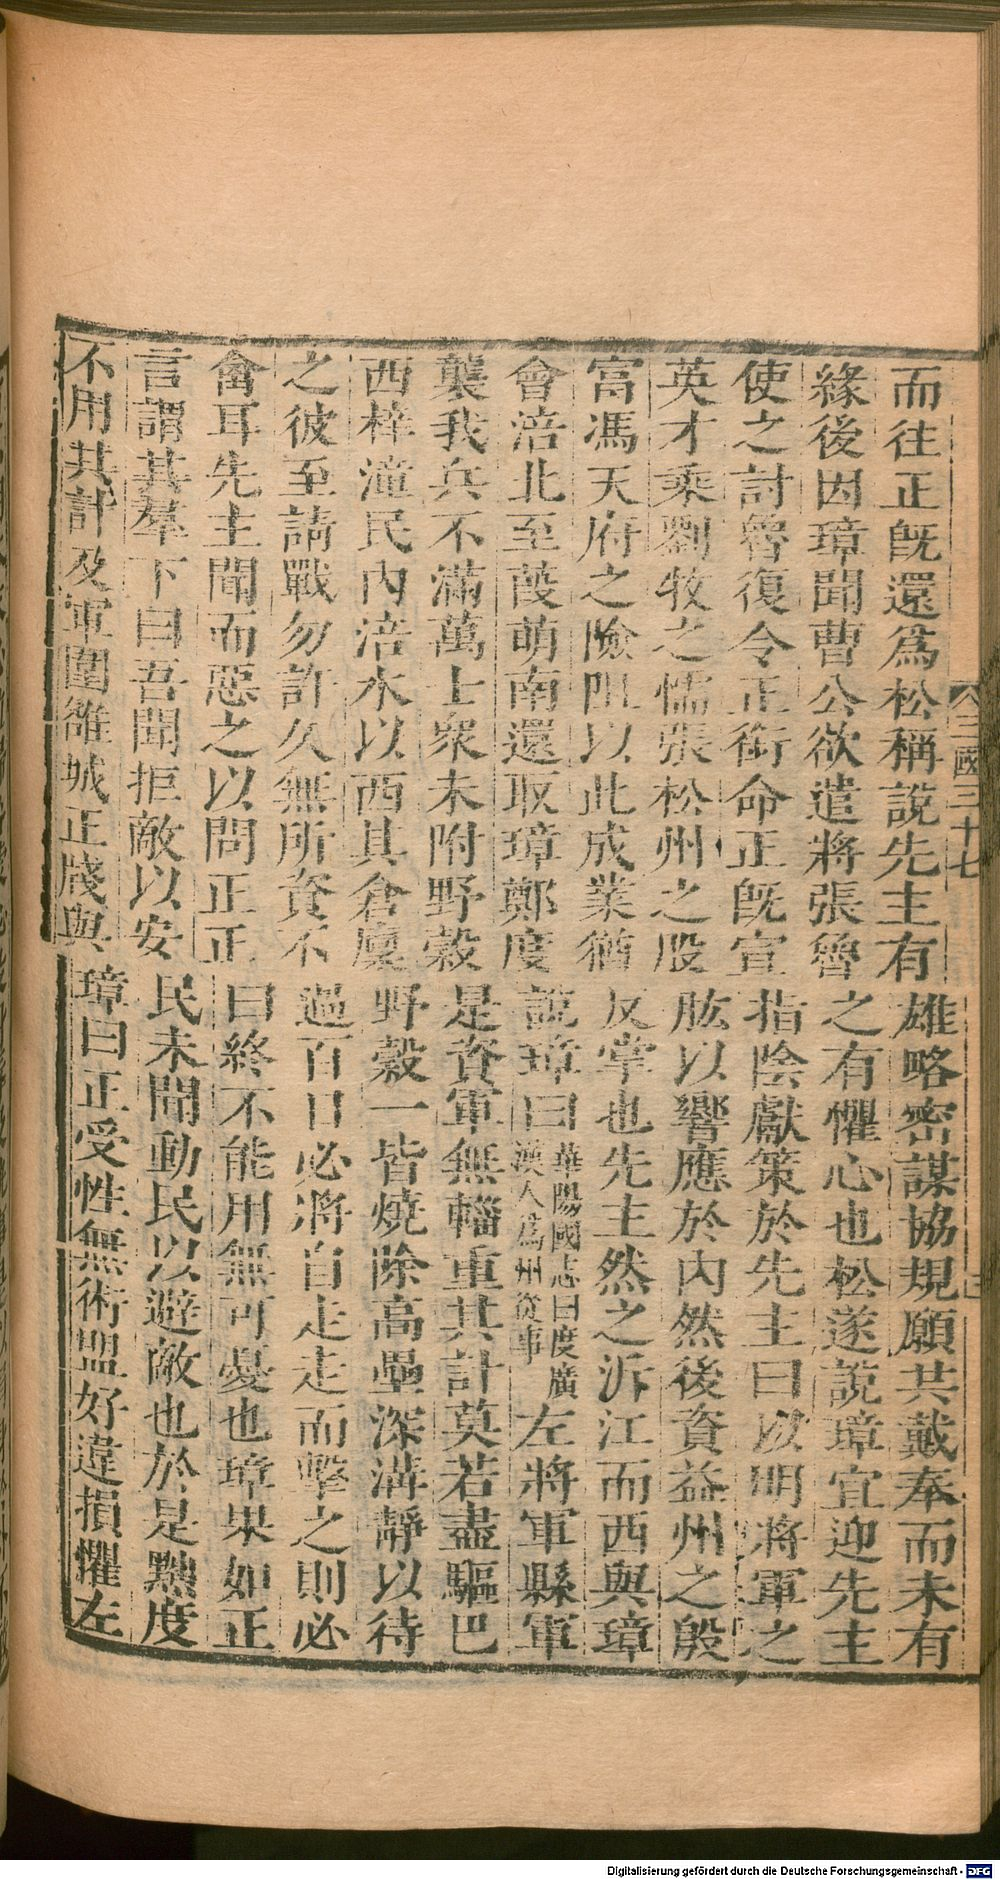 三國三十七
而往正旣還爲松稱說先主有雄略密謀協規願共戴奉而未有
緣後因璋聞曹公欲遣將張魯之有懼心也松遂說璋宜迎先主
使之討魯復令正銜命正旣宣指陰獻策於先主曰以明將軍之
英才乘劉牧之懦張松州之股肱以響應於內然後資益州之殷
富馮天府之險阻以此成業猶反掌也先主然之泝江而西與璋
會涪北至葭萌南還取璋鄭度說璋曰華陽國志曰度廣漢人爲州從事左將軍縣軍
襲我兵不滿萬士衆未附野穀是資軍無輜重其計莫若盡驅巴
西梓潼民內涪水以西其倉廩野穀一皆燒除高壘深溝靜以待
之彼至請戰勿許久無所資不過百日必將自走走而擊之則必
禽耳先主聞而惡之以問正正曰終不能用無可憂也璋果如正
言謂其羣下曰吾聞拒敵以安民未聞動民以避敵也於是黜度
不用其計及軍圍雒城正牋與璋曰正受性無術盟好違損懼左
Digitalisierung gefördert durch die Deutsche Forschungsgemeinschaft - DFG